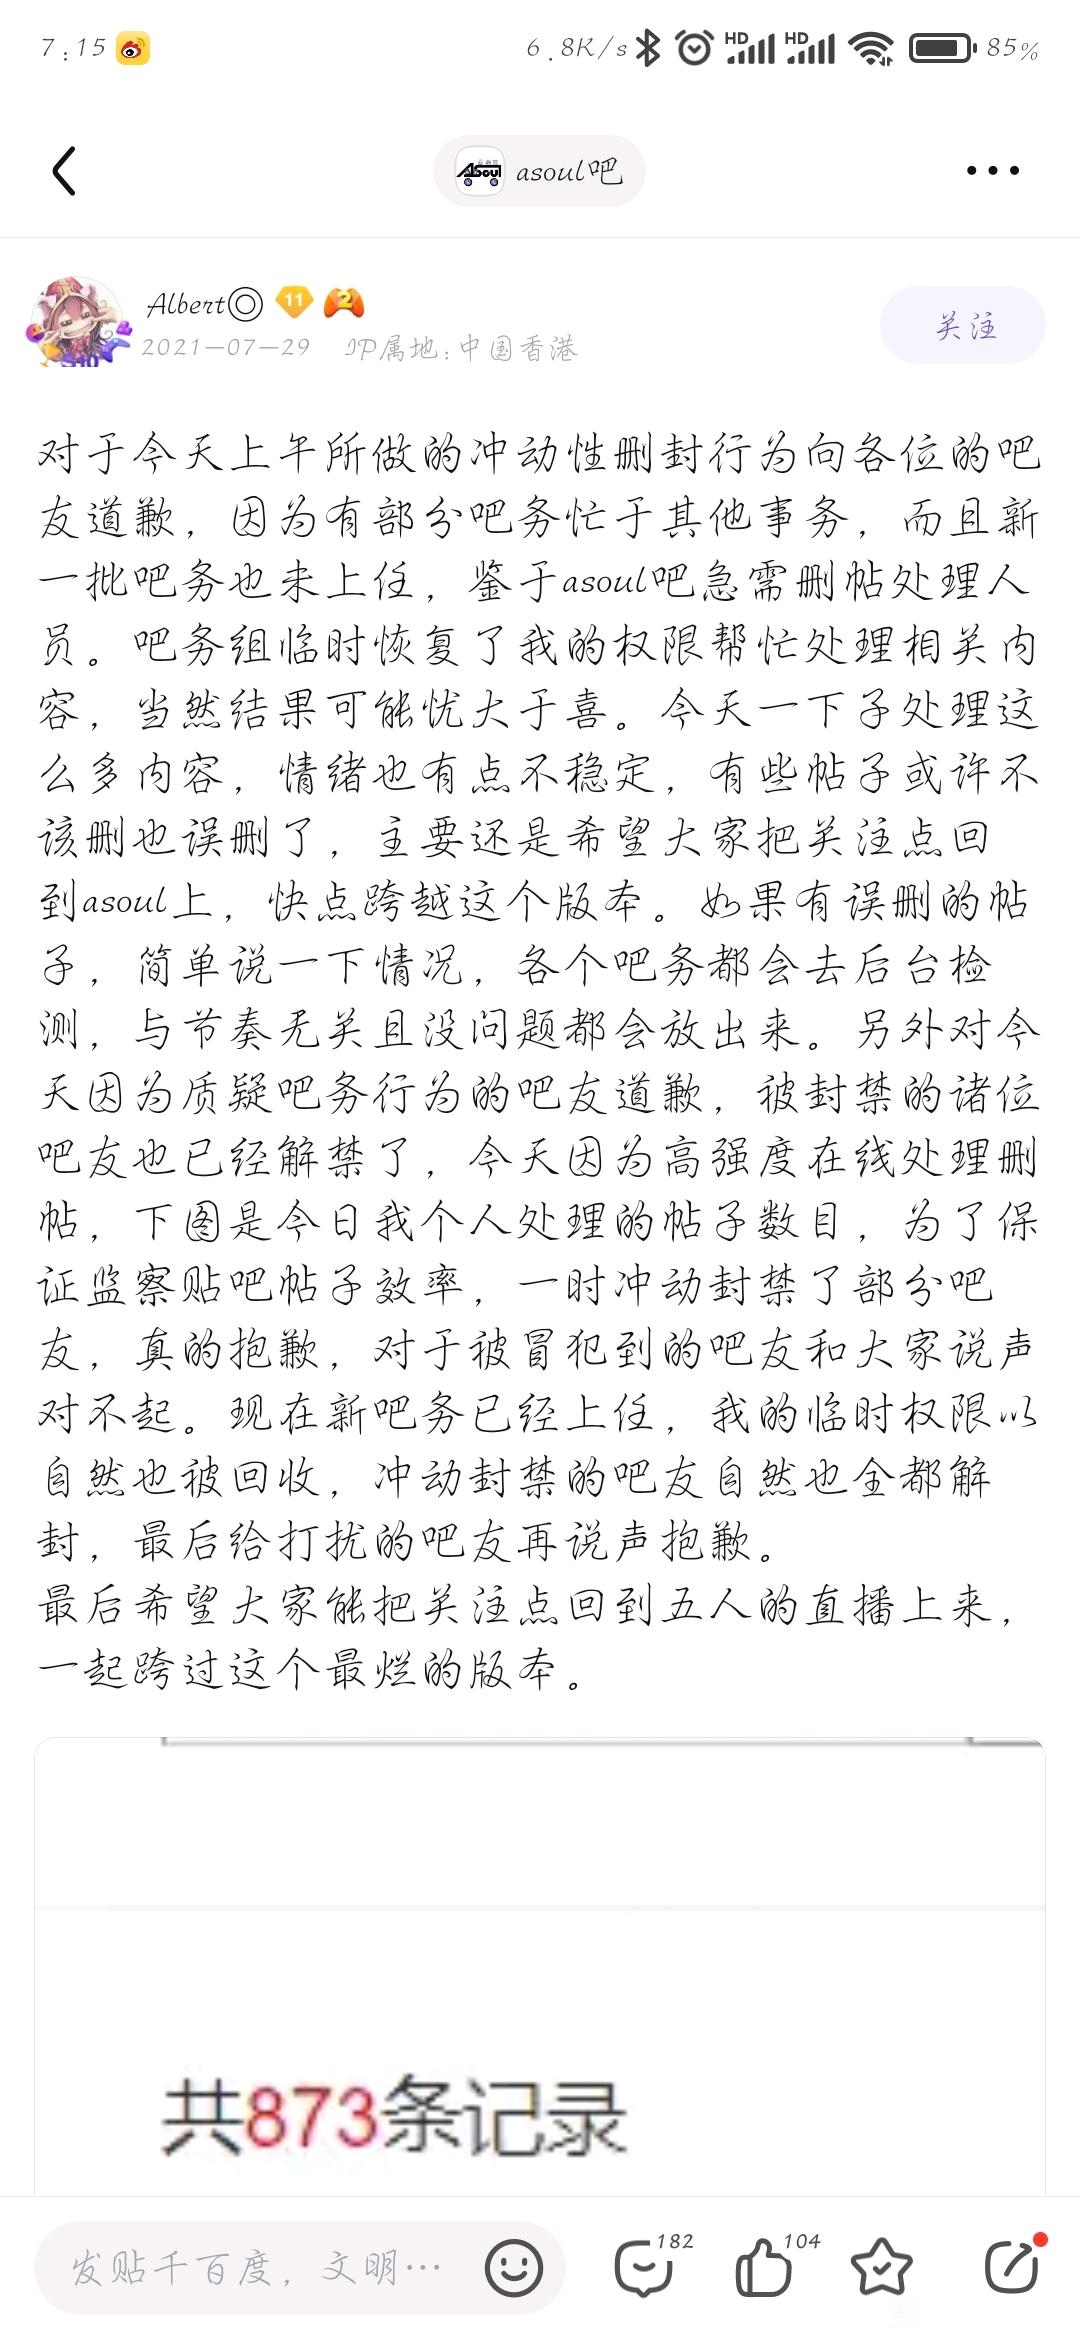 7:15
6.8K/s HD HD 85%
asoul吧
Albert◎ 11 2
2021-07-29 IP属地:中国香港
关注
对于今天上午所做的冲动性删封行为向各位的吧
友道歉，因为有部分吧务忙于其他事务，而且新
一批吧务也未上任，鉴于asoul吧急需删帖处理人
员。吧务组临时恢复了我的权限帮忙处理相关内
容，当然结果可能忧大于喜。今天一下子处理这
么多内容，情绪也有点不稳定，有些帖子或许不
该删也误删了，主要还是希望大家把关注点回
到asoul上，快点跨越这个版本。如果有误删的帖
子，简单说一下情况，各个吧务都会去后台检
测，与节奏无关且没问题都会放出来。另外对今
天因为质疑吧务行为的吧友道歉，被封禁的诸位
吧友也已经解禁了，今天因为高强度在线处理删
帖，下图是今日我个人处理的帖子数目，为了保
证监察贴吧帖子效率，一时冲动封禁了部分吧
友，真的抱歉，对于被冒犯到的吧友和大家说声
对不起。现在新吧务已经上任，我的临时权限以
自然也被回收，冲动封禁的吧友自然也全都解
封，最后给打扰的吧友再说声抱歉。
最后希望大家能把关注点回到五人的直播上来，
一起跨过这个最烂的版本。
共873条记录
发贴千百度，文明…
182
104